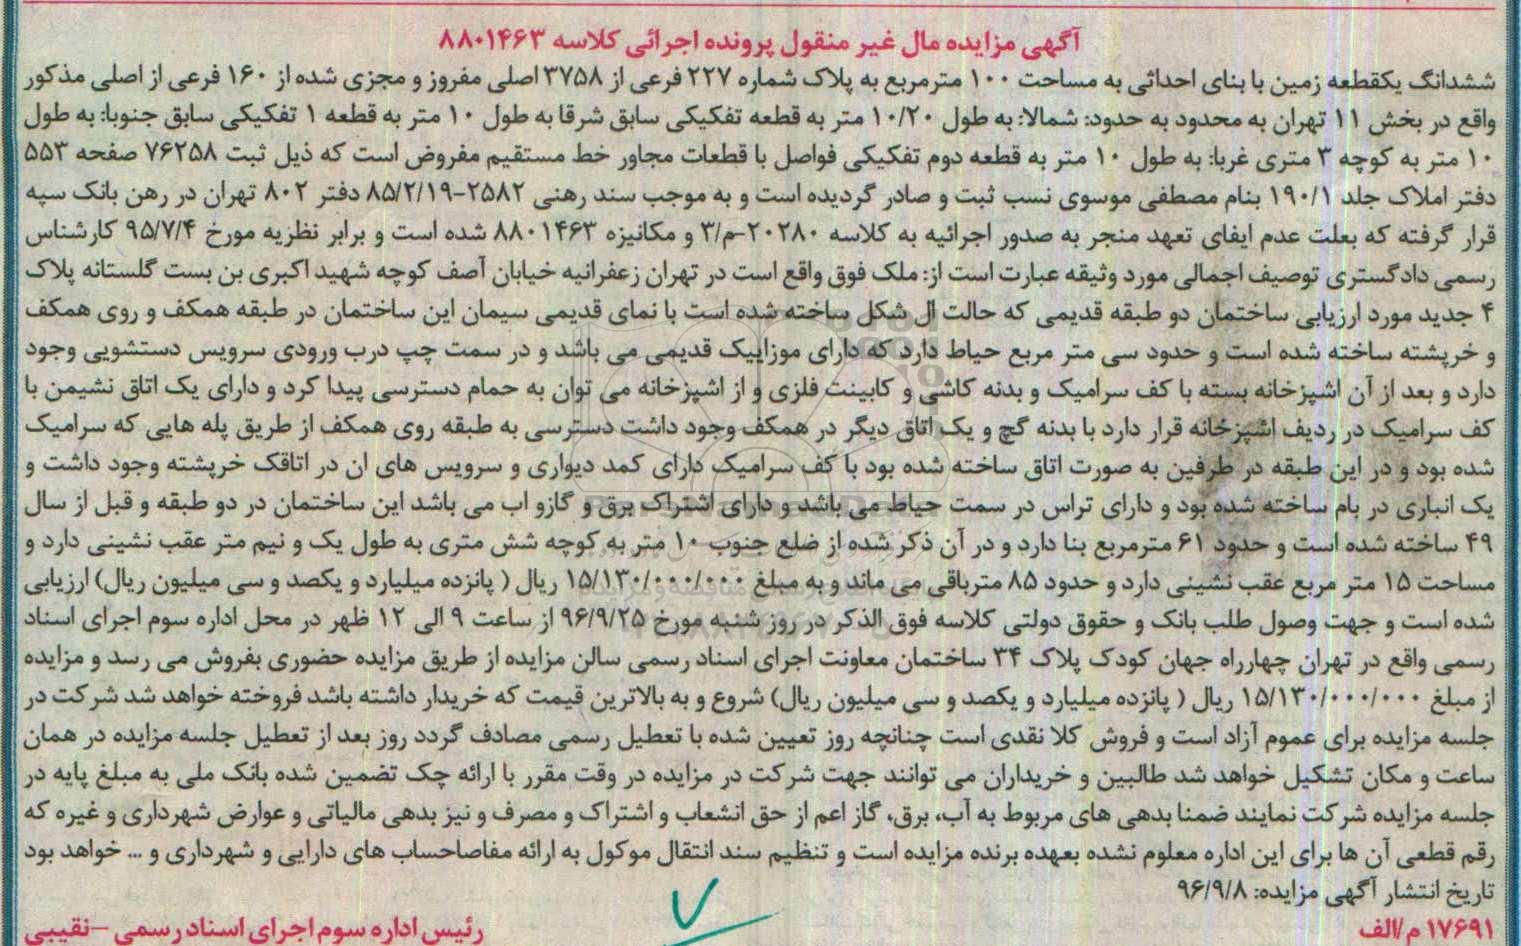 آگهی مزایده مال غیر منقول پرونده اجرائی کلاسه ۸۸۰۱۴۶۳
ششدانگ یکقطعه زمین با بنای احداثی به مساحت ۱۰۰ مترمربع به پلاک شماره ۲۲۷ فرعی از ۳۷۵۸ اصلی مفروز و مجزی شده از ۱۶۰ فرعی از اصلی مذکور
واقع در بخش ۱۱ تهران به محدود به حدود: شمالا: به طول ۱۰/۲۰ متر به قطعه تفکیکی سابق شرقا به طول ۱۰ متر به قطعه ۱ تفکیکی سابق جنوبا: به طول
۱۰ متر به کوچه ۳ متری غربا: به طول ۱۰ متر به قطعه دوم تفکیکی فواصل با قطعات مجاور خط مستقیم مفروض است که ذیل ثبت ۷۶۲۵۸ صفحه ۵۵۳
دفتر املاک جلد ۱۹۰/۱ بنام مصطفی موسوی نسب ثبت و صادر گردیده است و به موجب سند رهنی ۲۵۸۲-۸۵/۲/۱۹ دفتر ۸۰۲ تهران در رهن بانک سپه
قرار گرفته که بعلت عدم ایفای تعهد منجر به صدور اجرائیه به کلاسه ۲۰۲۸۰-م/۳ و مکانیزه ۸۸۰۱۴۶۳ شده است و برابر نظریه مورخ ۹۵/۷/۴ کارشناس
رسمی دادگستری توصیف اجمالی مورد وثیقه عبارت است از: ملک فوق واقع است در تهران زعفرانیه خیابان آصف کوچه شهید اکبری بن بست گلستانه پلاک
۴ جدید مورد ارزیابی ساختمان دو طبقه قدیمی که حالت ال شکل ساخته شده است با نمای قدیمی سیمان این ساختمان در طبقه همکف و روی همکف
و خرپشته ساخته شده است و حدود سی متر مربع حیاط دارد که دارای موزاییک قدیمی می باشد و در سمت چپ درب ورودی سرویس دستشویی وجود
دارد و بعد از آن اشپزخانه بسته با کف سرامیک و بدنه کاشی و کابینت فلزی و از اشپزخانه می توان به حمام دسترسی پیدا کرد و دارای یک اتاق نشیمن با
کف سرامیک در ردیف اشپزخانه قرار دارد با بدنه گچ و یک اتاق دیگر در همکف وجود داشت دسترسی به طبقه روی همکف از طریق پله هایی که سرامیک
شده بود و در این طبقه در طرفین به صورت اتاق ساخته شده بود با کف سرامیک دارای کمد دیواری و سرویس های ان در اتاقک خرپشته وجود داشت و
یک انباری در بام ساخته شده بود و دارای تراس در سمت حیاط می باشد و دارای اشتراک برق و گازو اب می باشد این ساختمان در دو طبقه و قبل از سال
۴۹ ساخته شده است و حدود ۶۱ مترمربع بنا دارد و در آن ذکر شده از ضلع جنوب ۱۰ متر به کوچه شش متری به طول یک و نیم متر عقب نشینی دارد و
مساحت ۱۵ متر مربع عقب نشینی دارد و حدود ۸۵ مترباقی می ماند و به مبلغ ۱۵/۱۳۰/۰۰۰/۰۰۰ ریال ( پانزده میلیارد و یکصد و سی میلیون ریال) ارزیابی
شده است و جهت وصول طلب بانک و حقوق دولتی کلاسه فوق الذکر در روز شنبه مورخ ۹۶/۹/۲۵ از ساعت ۹ الی ۱۲ ظهر در محل اداره سوم اجرای اسناد
رسمی واقع در تهران چهارراه جهان کودک پلاک ۳۴ ساختمان معاونت اجرای اسناد رسمی سالن مزایده از طریق مزایده حضوری بفروش می رسد و مزایده
از مبلغ ۱۵/۱۳۰/۰۰۰/۰۰۰ ریال ( پانزده میلیارد و یکصد و سی میلیون ریال) شروع و به بالاترین قیمت که خریدار داشته باشد فروخته خواهد شد شرکت در
جلسه مزایده برای عموم آزاد است و فروش کلا نقدی است چنانچه روز تعیین شده با تعطیل رسمی مصادف گردد روز بعد از تعطیل جلسه مزایده در همان
ساعت و مکان تشکیل خواهد شد طالبین و خریداران می توانند جهت شرکت در مزایده در وقت مقرر با ارائه چک تضمین شده بانک ملی به مبلغ پایه در
جلسه مزایده شرکت نمایند ضمنا بدهی های مربوط به آب، برق، گاز اعم از حق انشعاب و اشتراک و مصرف و نیز بدهی مالیاتی و عوارض شهرداری و غیره که
رقم قطعی آن ها برای این اداره معلوم نشده بعهده برنده مزایده است و تنظیم سند انتقال موکول به ارائه مفاصاحساب های دارایی و شهرداری و ... خواهد بود
تاریخ انتشار آگهی مزایده: ۹۶/۹/۸
۱۷۶۹۱ م/الف
رئیس اداره سوم اجرای اسناد رسمی –نقیبی